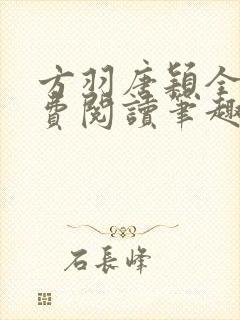 方羽唐穎全
費閱讀筆趣
石長峰